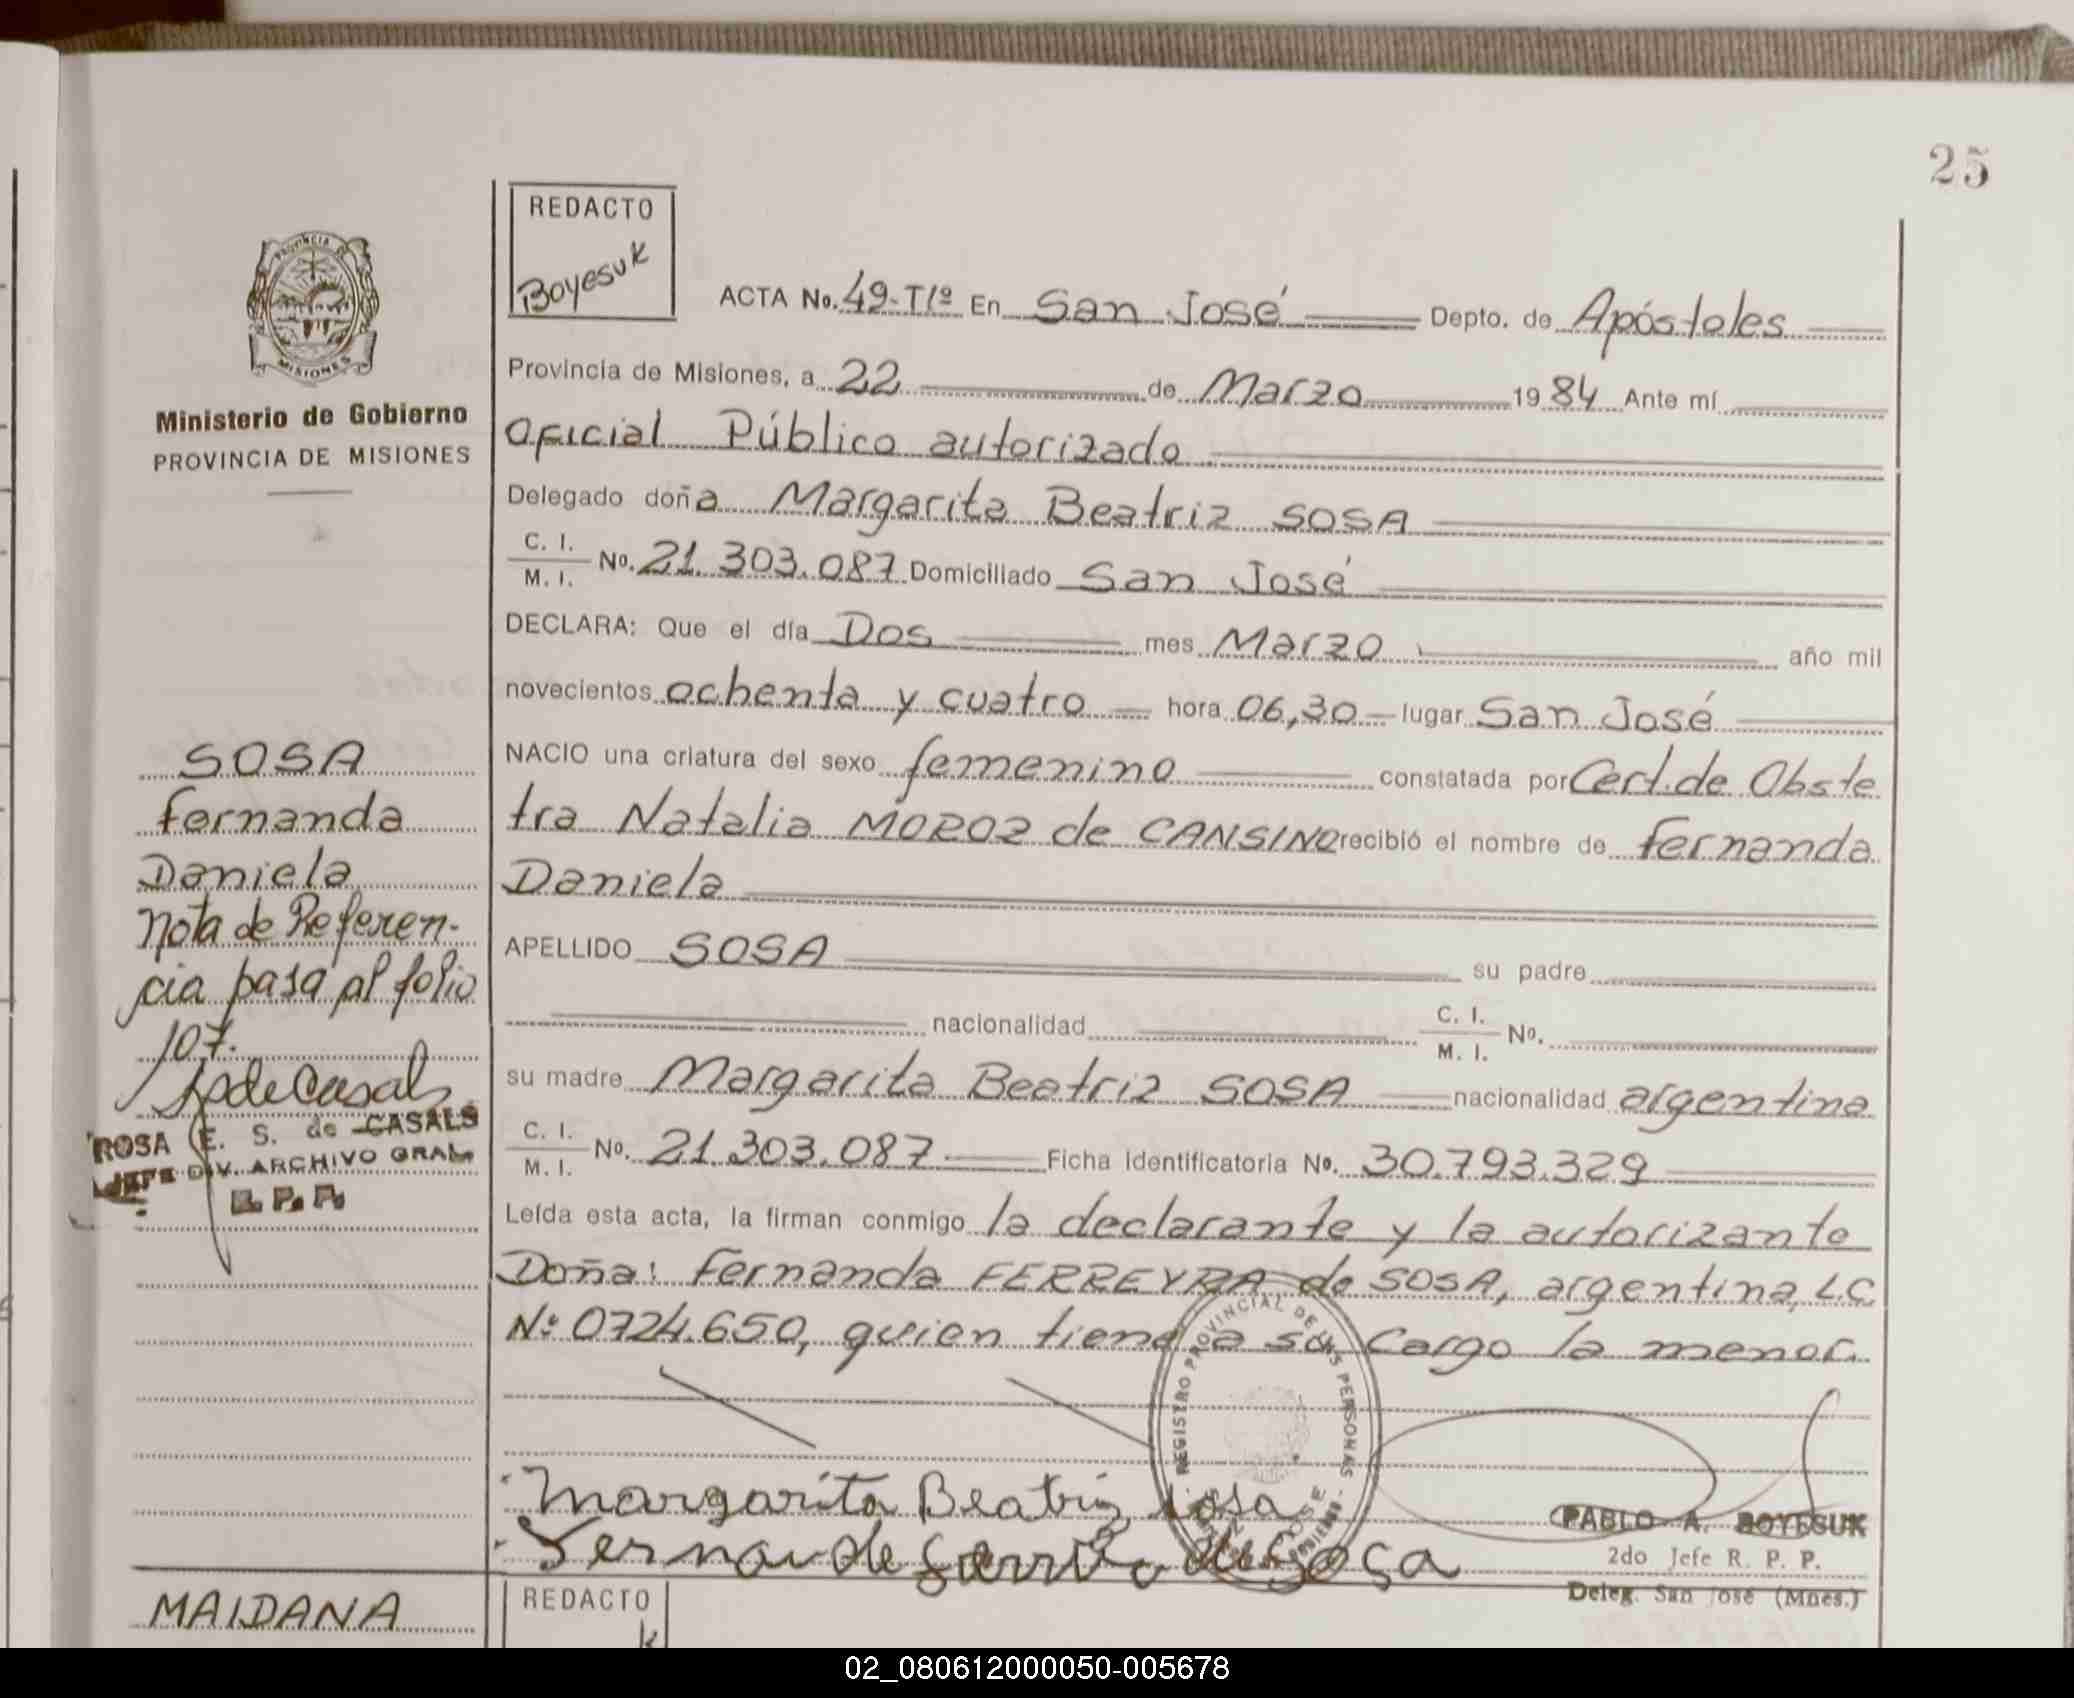 25
REDACTO
Boyesuk
ACTA No. 49-T1º En San José Depto. de Apóstoles
Provincia de Misiones, a 22 de Marzo 1984 Ante mí
Oficial Público autorizado
Delegado doña Margarita Beatriz SOSA
C. I.
M. I. No. 21.303.087 Domiciliado San José
DECLARA: Que el día Dos mes Marzo año mil
novecientos ochenta y cuatro hora 06,30 lugar San José
NACIO una criatura del sexo femenino constatada por Cert. de Obste
tra Natalia MOROZ de CANSINO recibió el nombre de Fernanda
Daniela
APELLIDO SOSA su padre
nacionalidad C. I.
M. I. No.
su madre Margarita Beatriz SOSA nacionalidad argentina
C. I.
M. I. No. 21.303.087 Ficha identificatoria No. 30.793.329
Leída esta acta, la firman conmigo la declarante y la autorizante
Doña: Fernanda FERREYRA de SOSA, argentina, L.C.
Nº 0724.650, quien tiene a su cargo la menor.
Margarita Beatriz Sosa
de Sosa
REGISTRO PROVINCIAL DE LAS PERSONAS
PABLO A. BOYESUK
2do Jefe R. P. P.
Deleg. San José (Mnes.)
PROVINCIA DE
MISIONES
Ministerio de Gobierno
PROVINCIA DE MISIONES
SOSA
Fernanda
Daniela
Nota de Referen-
cia pasa al folio
107.
ROSA E. S. de CASALS
JEFE DIV. ARCHIVO GRAL.
MAIDANA
REDACTO
02_080612000050-005678